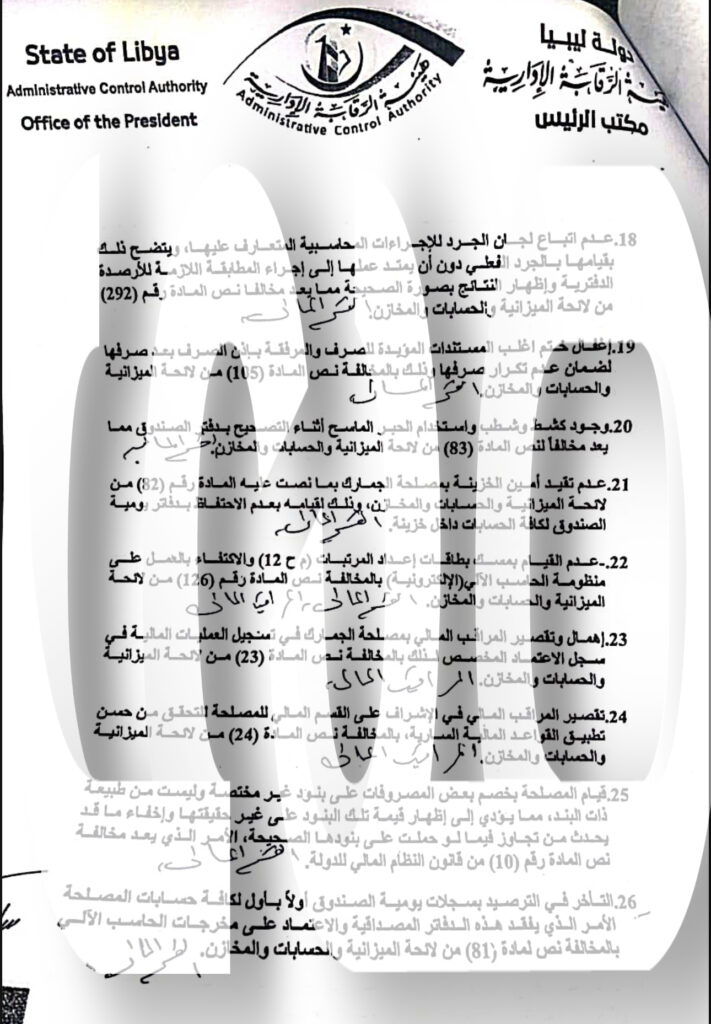 State of Libya
Administrative Control Authority
Office of the President
هيئة الرقابة الإدارية
Administrative Control Authority
دولة ليبيا
هيئة الرقابة الإدارية
مكتب الرئيس
18.عدم اتباع لجان الجرد للإجراءات المحاسبية المتعارف عليها، ويتضح ذلك
بقيامها بالجرد الفعلي دون أن يمتد عملها إلى إجراء المطابقة اللازمة للأرصدة
الدفترية وإظهار النتائج بصورة الصحيحة مما يعد مخالفا نص المادة رقم (292)
من لائحة الميزانية والحسابات والمخازن. القسم المالي
19.إغفال ختم اغلب المستندات المؤيدة للصرف والمرفقة بإذن الصرف بعد صرفها
لضمان عدم تكرار صرفها وذلك بالمخالفة نص المادة (105) من لائحة الميزانية
والحسابات والمخازن. القسم المالي
20.وجود كشط وشطب واستخدام الحبر الماسح أثناء التصحيح بدفتر الصندوق مما
يعد مخالفاً لنص المادة (83) من لائحة الميزانية والحسابات والمخازن. القسم المالي
21.عدم تقيد أمين الخزينة بمصلحة الجمارك بما نصت عليه المادة رقم (82) من
لائحة الميزانية والحسابات والمخازن، وذلك لقيامه بعدم الاحتفاظ بدفاتر يومية
الصندوق لكافة الحسابات داخل خزينة. القسم المالي
22.-عدم القيام بمسك بطاقات إعداد المرتبات (م ح 12) والاكتفاء بالعمل على
منظومة الحاسب الآلي(الإلكترونية) بالمخالفة نص المادة رقم (126) من لائحة
الميزانية والحسابات والمخازن. القسم المالي - المراقب المالي
23.إهمال وتقصير المراقب المالي بمصلحة الجمارك في تسجيل العمليات المالية في
سجل الاعتماد المخصص لذلك بالمخالفة نص المادة (23) من لائحة الميزانية
والحسابات والمخازن. المراقب المالي
24.تقصير المراقب المالي في الإشراف على القسم المالي للمصلحة للتحقق من حسن
تطبيق القواعد المالية السارية، بالمخالفة نص المادة (24) من لائحة الميزانية
والحسابات والمخازن. المراقب المالي
25.قيام المصلحة بخصم بعض المصروفات على بنود غير مختصة وليست من طبيعة
ذات البند، مما يؤدي إلى إظهار قيمة تلك البنود على غير حقيقتها وإخفاء ما قد
يحدث من تجاوز فيما لو حملت على بنودها الصحيحة، الأمر الذي يعد مخالفة
نص المادة رقم (10) من قانون النظام المالي للدولة. القسم المالي
26.التأخر في الترصيد بسجلات يومية الصندوق أولاً بأول لكافة حسابات المصلحة
الأمر الذي يفقد هذه الدفاتر المصداقية والاعتماد على مخرجات الحاسب الآلي
بالمخالفة نص لمادة (81) من لائحة الميزانية والحسابات والمخازن. القسم المالي